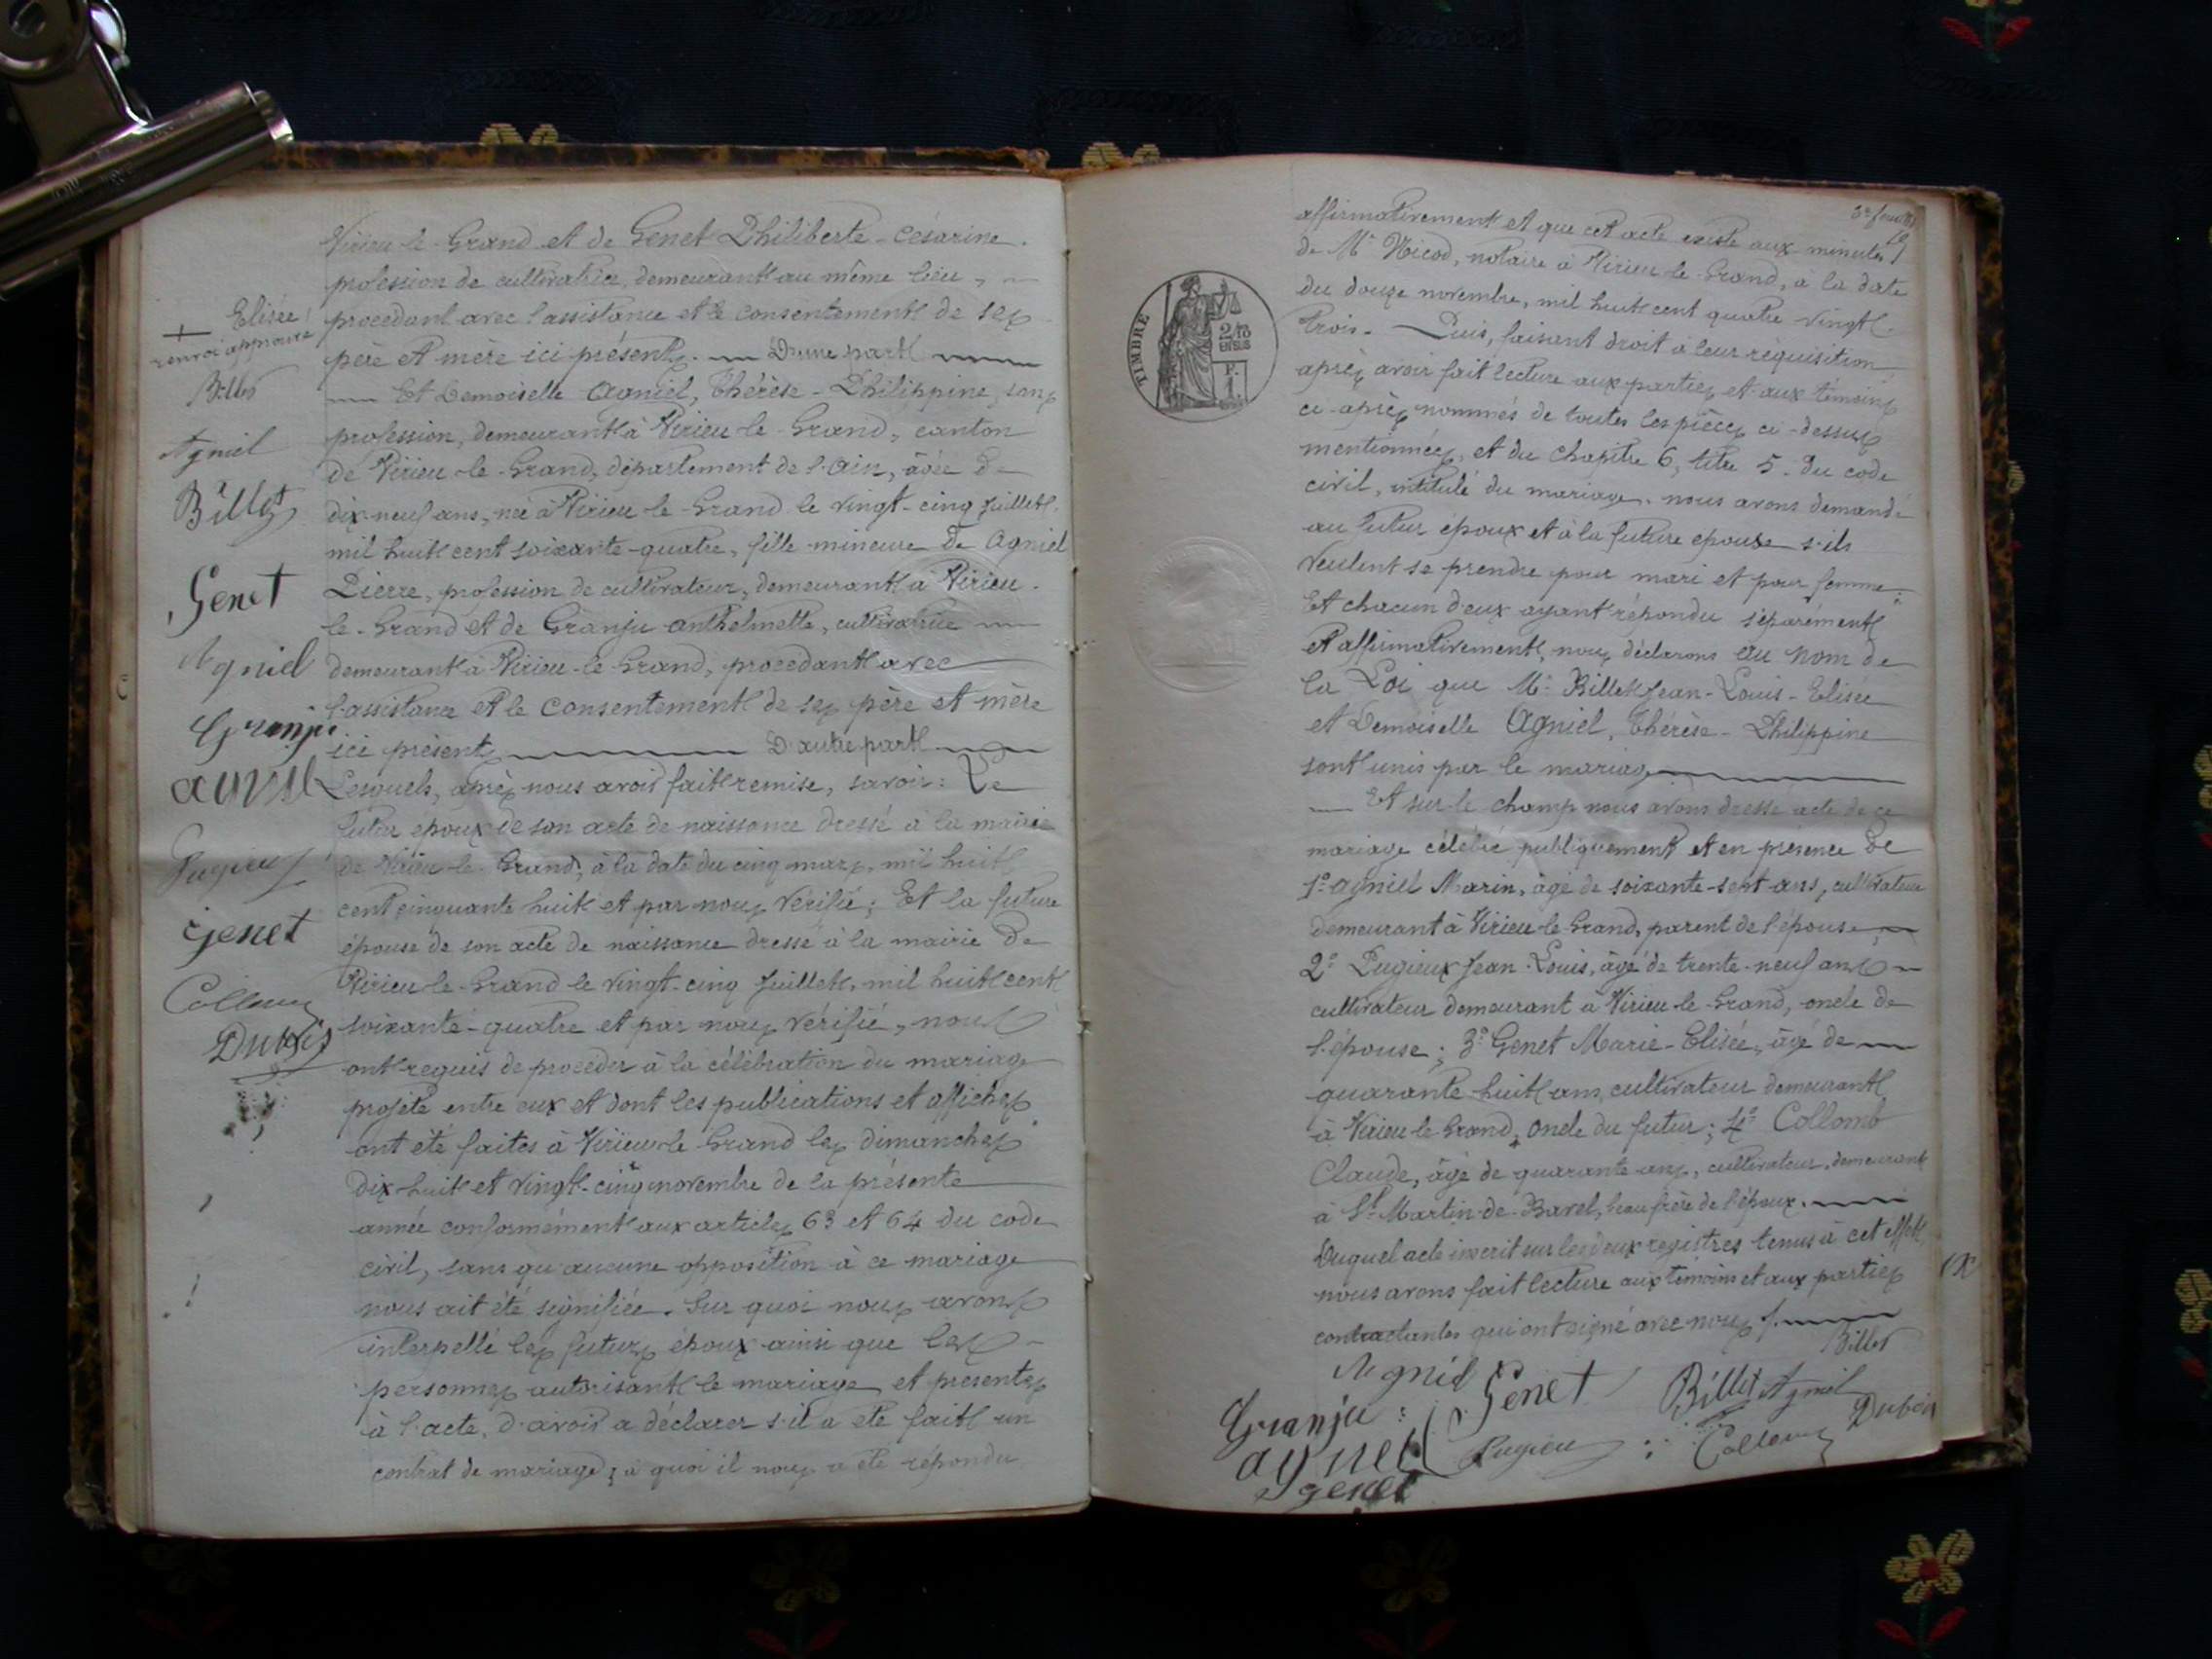 Virieu-le-Grand et de Genet Philiberte-Césarine.
profession de cultivatrice, demeurant au même lieu,
procédant avec l'assistance et le consentement de ses
père et mère ici présents. D'une part
Et Demoiselle Agniel, Thérèse-Philippine, sans
profession, demeurant à Virieu-le-Grand, canton
de Virieu-le-Grand, département de l'Ain, âgée de
dix-neuf ans, née à Virieu-le-Grand le vingt-cinq juillet
mil huit cent soixante-quatre, fille mineure de Agniel
Pierre, profession de cultivateur, demeurant à Virieu-
le-Grand et de Granju Anthelmette, cultivatrice
demeurant à Virieu-le-Grand, procédant avec
l'assistance et le consentement de ses père et mère
ici présents D'autre part
Lesquels, après nous avoir fait remise, savoir: Le
futur époux de son acte de naissance dressé à la mairie
de Virieu-le-Grand, à la date du cinq mars, mil huit
cent cinquante huit et par nous vérifié; Et la future
épouse de son acte de naissance dressé à la mairie de
Virieu-le-Grand le vingt-cinq juillet, mil huit cent
soixante-quatre et par nous vérifié, nous
ont requis de procéder à la célébration du mariage
projeté entre eux et dont les publications et affiches
ont été faites à Virieu-le-Grand les dimanches
dix-huit et vingt-cinq novembre de la présente
année conformément aux articles 63 et 64 du code
civil, sans qu'aucune opposition à ce mariage
nous ait été signifiée. Sur quoi nous avons
interpellé les futurs époux ainsi que les
personnes autorisant le mariage et présentes
à l'acte, d'avoir a déclarer s'il a été fait un
contrat de mariage; à quoi il nous a été répondu
+ Elisée
renvoi approuvé
Billet
Agniel
Billet
Genet
Agniel
Granju
agniel
Pugieux
Genet
Collomb
Dubois
3e feuillet
affirmativement et que cet acte existe aux minutes
de Me Nicod, notaire à Virieu-le-Grand, à la date
du douze novembre, mil huit cent quatre-vingt
trois. Puis, faisant droit à leur réquisition
après avoir fait lecture aux parties et aux témoins
ci-après nommés de toutes les pièces ci-dessus
mentionnées, et du chapitre 6, titre 5. du code
civil, intitulé du mariage. nous avons demandé
au futur époux et à la future épouse s'ils
veulent se prendre pour mari et pour femme:
Et chacun d'eux ayant répondu séparément
et affirmativement, nous déclarons au nom de
la Loi que Mr Billet Jean-Louis-Elisée
et Demoiselle Agniel, Thérèse-Philippine
sont unis par le mariage
Et sur-le champ nous avons dressé acte de ce
mariage célébré publiquement et en présence de
1° Agniel Marin, âgé de soixante-sept ans, cultivateur
demeurant à Virieu-le-Grand, parent de l'épouse,
2° Pugieux Jean-Louis, âgé de trente-neuf ans
cultivateur demeurant à Virieu-le-Grand, oncle de
l'épouse; 3° Genet Marie-Elisée, âgé de
quarante-huit ans, cultivateur demeurant
à Virieu-le-Grand, oncle du futur; 4° Collomb
Claude, âgé de quarante ans, cultivateur, demeurant
à St Martin-de-Bavel, beau frère de l'époux.
Duquel acte inscrit sur les deux registres tenus à cet effet
nous avons fait lecture aux témoins et aux parties
contractantes qui ont signé avec nous
Billet
Agniel Genet Billet Agniel
Granju Dubois
agniel Pugieux Collomb
genet
TIMBRE
2/10
EN SUS
F.
1.